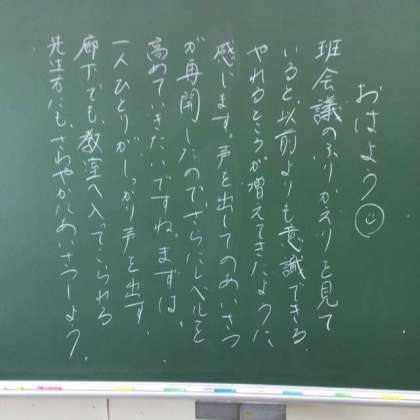 おはよう
班会議のふりかえりを見て
いると、以前よりも意識できる
やれるところが増えてきたように
感じます。声を出してのあいさつ
が再開したので、さらにレベルを
高めていきたいですね。まずは、
一人ひとりがしっかり声を出す
廊下でも、教室へ入ってこられる
先生方にも、さわやかにあいさつしよう。